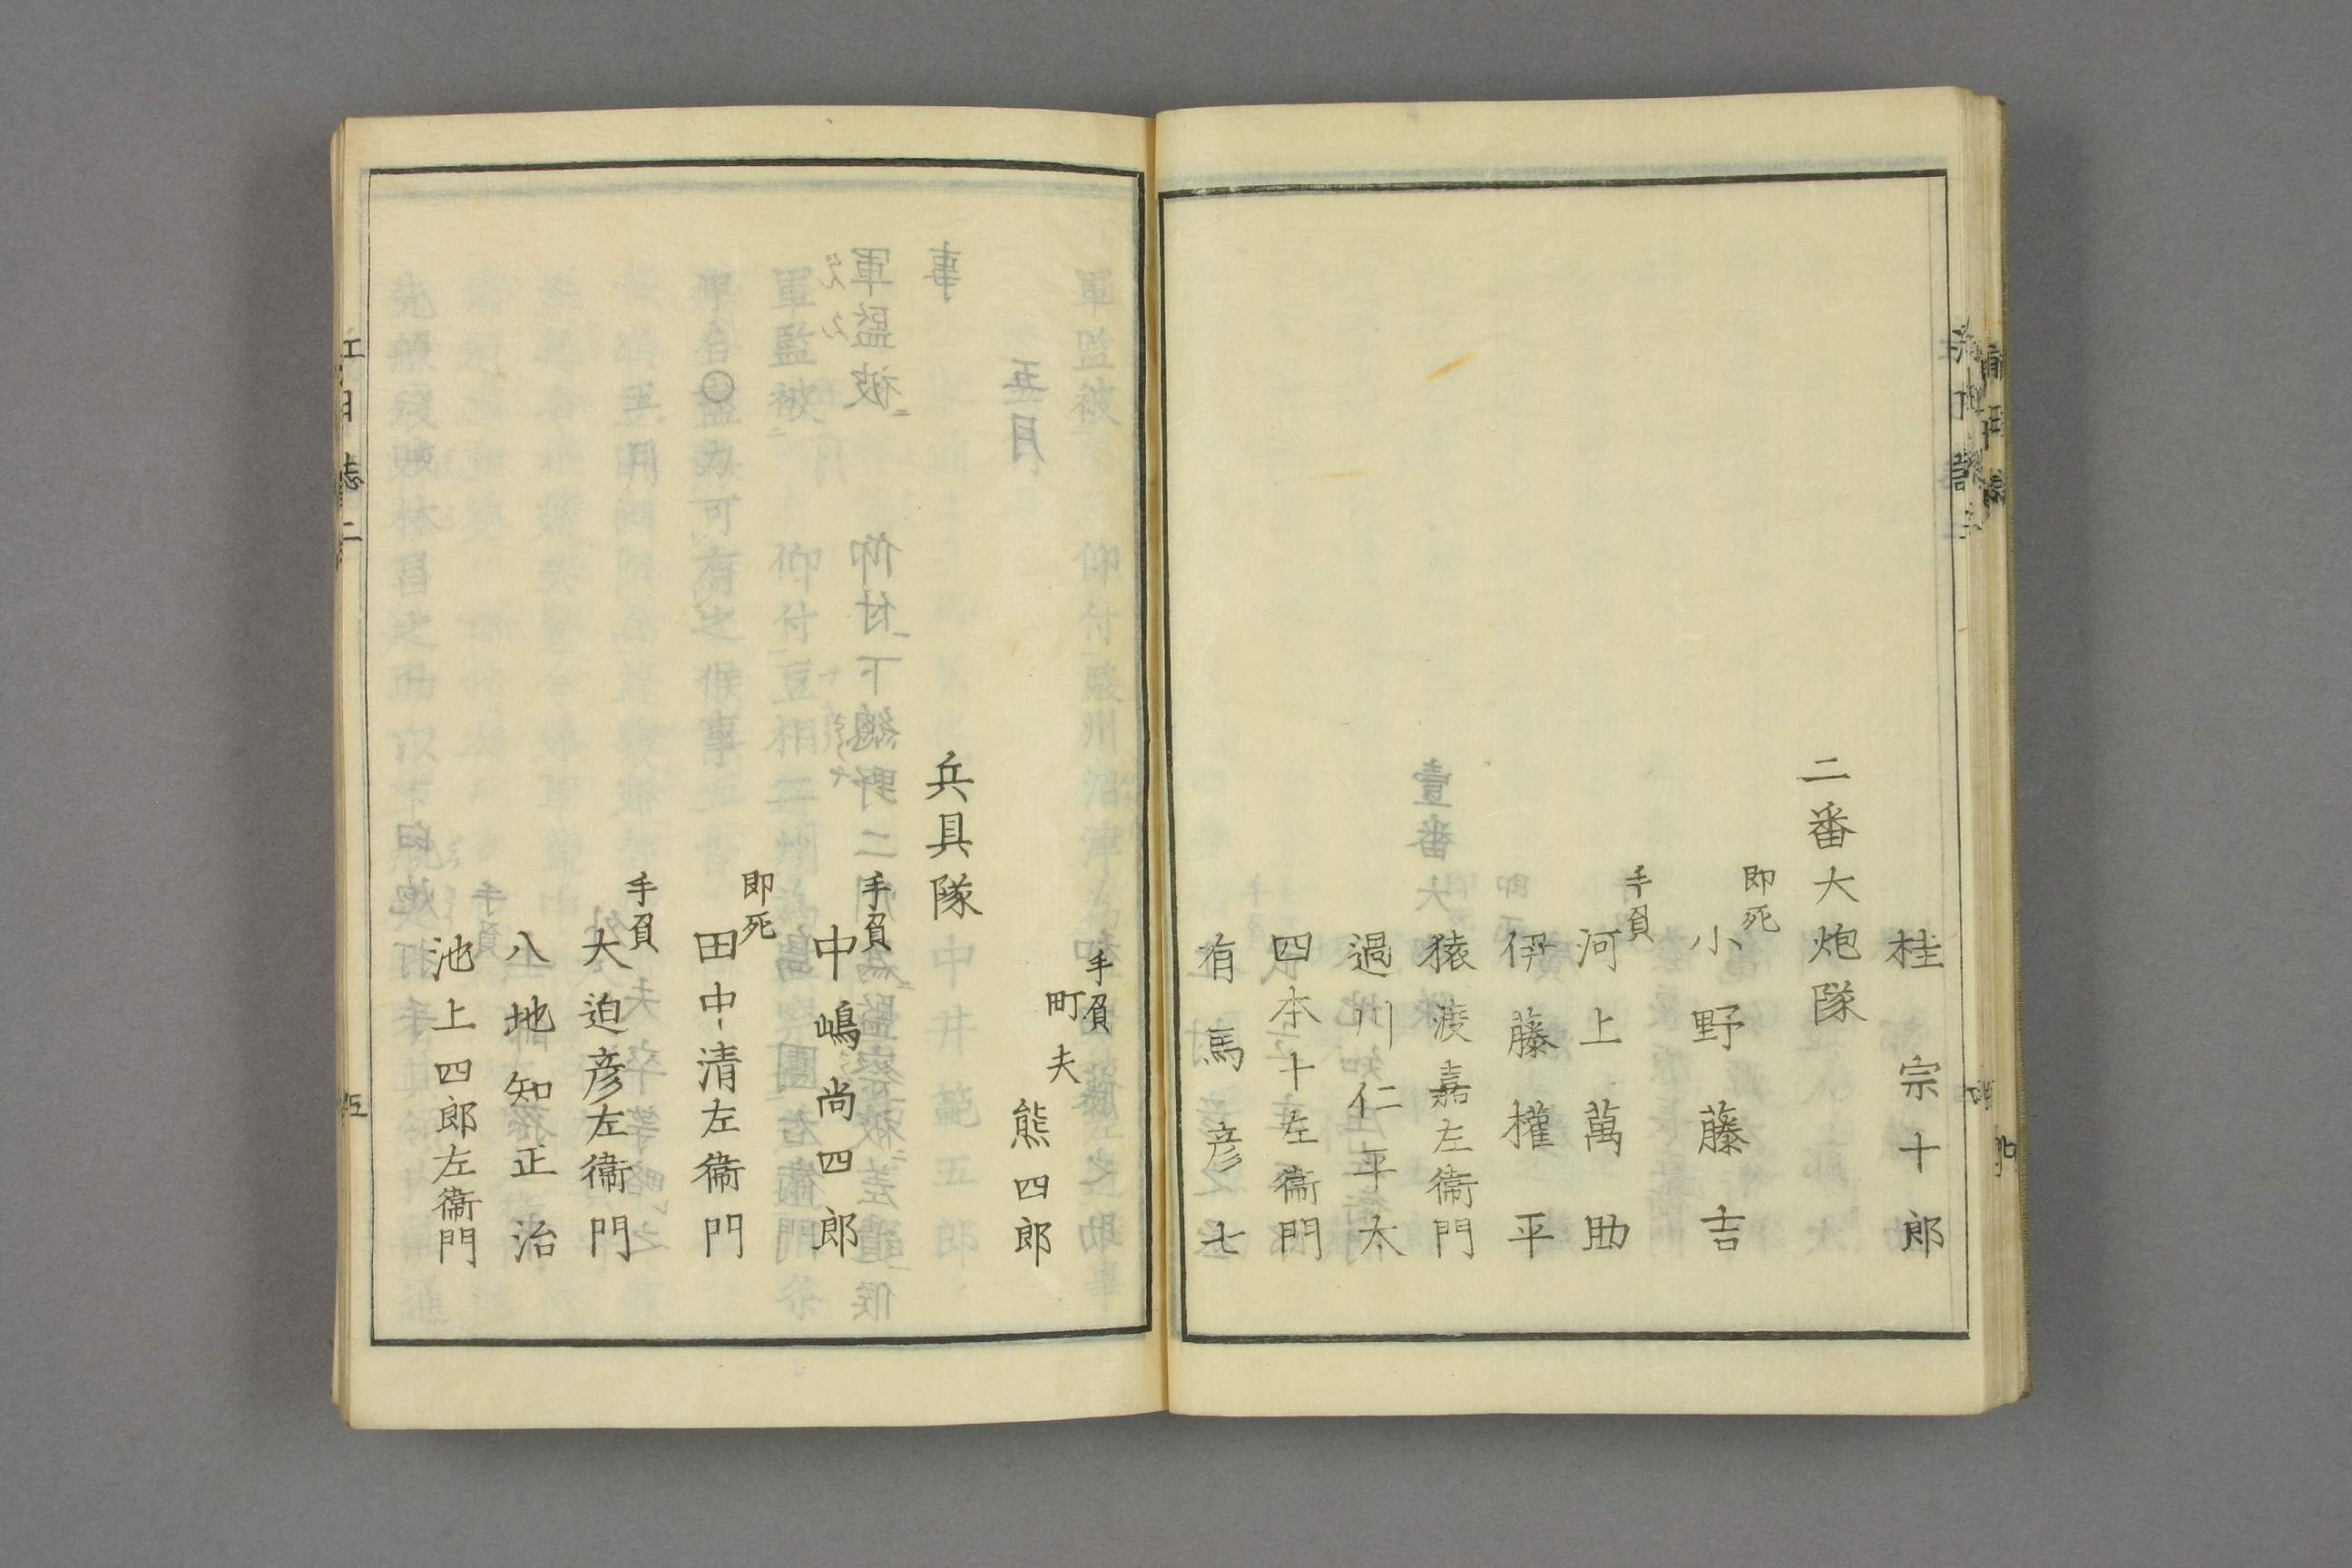 桂宗十郎
二番大炮隊
即死
小野藤吉
手負
河上萬助
伊藤權平
猿渡嘉左衞門
過川仁平太
四本十左衞門
有馬彦七
手負
町夫
熊四郎
兵具隊
手負
中嶋尚四郎
即死
田中清左衞門
手負
大迫彦左衞門
八地知正治
池上四郎左衞門